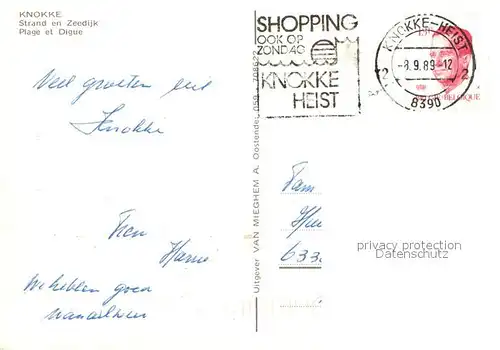 KNOKKE
Strand en Zeedijk
Plage et Digue
SHOPPING
OOK OP
ZONDAG
KNOKKE
HEIST
KNOKKE-HEIST
-8.9.89-12
2 2
8390
BELGIQUE
Veel groeten uit
Knokke
Fam
633
We hebben goed
Uitgever VAN MIEGHEM A. Oostende, 059 - 708622
privacy protection
Datenschutz